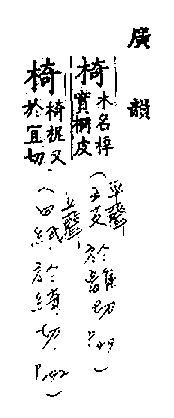 廣韻
椅 木名梓實桐皮
平聲
(五支 於離切 P.49)
椅 椅柅又於宜切
上聲
(四紙 於綺切 P.242)